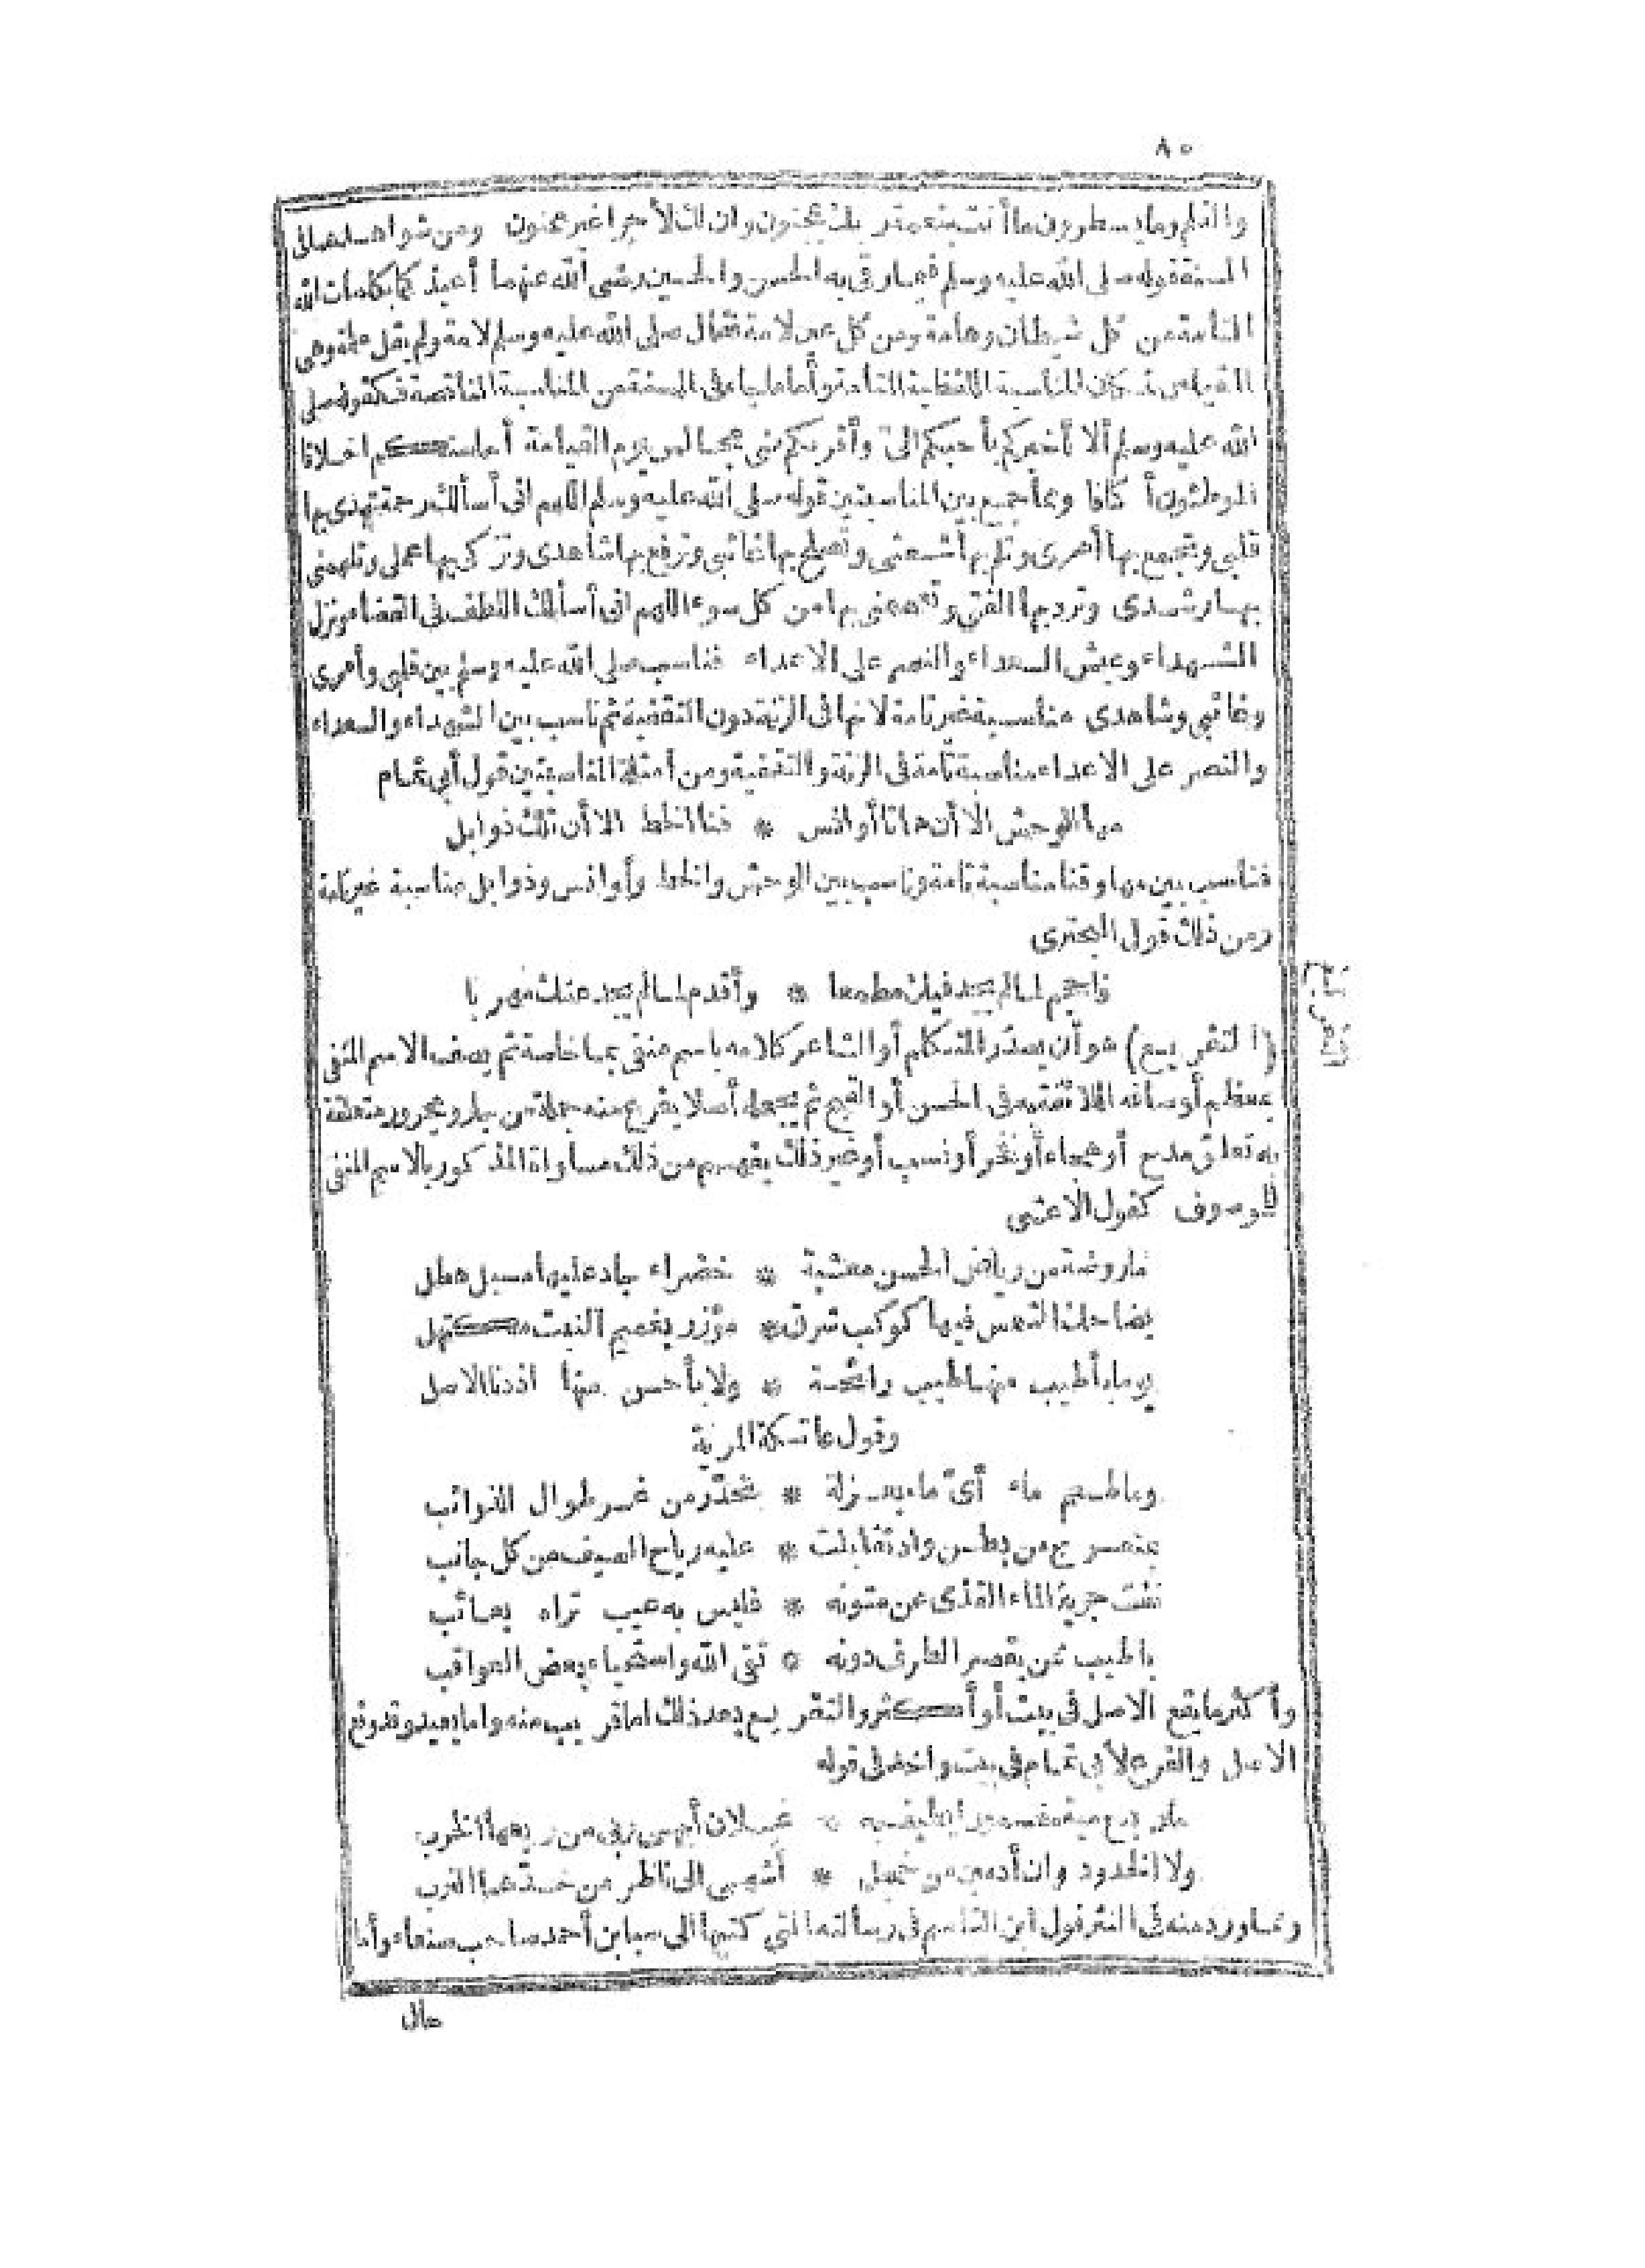 ٨٥
والقلم وما يسطرون ما أنت بنعمة ربك بمجنون وان لك لأجرا غير ممنون ومن شواهدها في
السنة قوله صلى الله عليه وسلم فيما رقى به الحسن والحسين رضى الله عنهما أعيذكما بكلمات الله
التامة من كل شيطان وهامة ومن كل عين لامة فقال صلى الله عليه وسلم لامة ولم يقل ملمة وهى
القياس لمكان المناسبة اللفظية التامة وأما ما جاء فى السنة من المناسبة الناقصة فكقوله صلى
الله عليه وسلم ألا أخبركم بأحبكم الىّ وأقربكم منى مجالس يوم القيامة أحاسنكم اخلاقا
الموطئون أكنافا ومما جمع بين المناسبتين قوله صلى الله عليه وسلم اللهم انى أسألك رحمة تهدى بها
قلبى وتجمع بها أمرى وتلم بها شعثى وتصلح بها غائبى وترفع بها شاهدى وتزكى بها عملى وتلهمنى
بها رشدى وترد بها الفتى وتعصمنى بها من كل سوء اللهم انى أسألك اللطف فى القضاء ونزل
الشهداء وعيش السعداء والنصر على الاعداء فناسب صلى الله عليه وسلم بين قلبى وأمرى
وغائبى وشاهدى مناسبة غير تامة لانها فى الزنة دون التقفية ثم ناسب بين الشهداء والسعداء
والنصر على الاعداء مناسبة تامة فى الزنة والتقفية ومن أمثلة المناسبتين قول أبى تمام
مها الوحش الا أن هاتا أوانس * قنا الخط الا أن تلك ذوابل
فناسب بين مها وقنا مناسبة تامة وناسب بين الوحش والخط وأوانس وذوابل مناسبة غير تامة
ومن ذلك قول البحترى
فاحجم لما لم يجد فيك مطمعا * وأقدم لما لم يجد عنك مهربا
التفريع
(التفريع) هو أن يصدّر المتكلم أو الشاعر كلامه باسم منفى بما خاصة ثم يصف الاسم المنفى
بمعظم أوصافه اللائقة به فى الحسن أو القبح ثم يجعله أصلا يفرع منه جملة من جار ومجرور متعلقة
به تعلق مدح أو هجاء أو فخر أو نسب أو غير ذلك يفهم من ذلك مساواة المذكور بالاسم المنفى
الموصوف كقول الاعشى
ما روضة من رياض الحسن معشبة * خضراء جاد عليها مسبل هطل
يضاحك الشمس فيها كوكب شرق * مؤزر بعميم النبت مكتهل
يوما بأطيب منها طيب رائحة * ولا بأحسن منها اذ دنا الاصل
وقول عاتكة المرية
وما طعم ماء أىّ ماء بمزنة * تحدّر من غر طوال الذوائب
بمنعرج من بطن واد تقابلت * عليه رياح الصيف من كل جانب
نفت جرية الماء القذى عن متونه * فليس به عيب تراه بعائب
باطيب ممن يقصر الطرف دونه * تقى الله واستحياء بعض العواقب
وأكثر ما يقع الاصل فى بيت أو أكثر والتفريع بعد ذلك اما قريب منه واما بعيد وقد وقع
الاصل والفرع لأبى تمام فى بيت واحد فى قوله
ما ربع مية معمورا يطيف به * غيلان أبهى ربى من ربعها الخرب
ولا الخدود وان أدمين من خجل * أشهى الى ناظر من خدّها الترب
ومما ورد منه فى النثر قول ابن القاسم فى رسالته التى كتبها الى سبا بن أحمد صاحب صنعاء وأما
حال